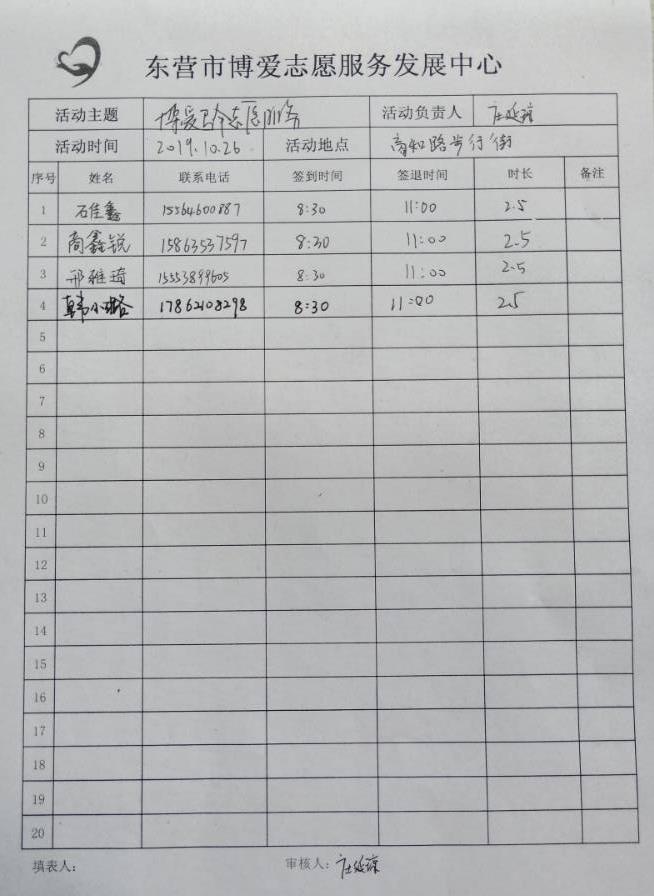 东营市博爱志愿服务发展中心
活动主题 博爱 志愿服务 活动负责人 庄延琼
活动时间 2019.10.26 活动地点 商和路步行街
序号 姓名 联系电话 签到时间 签退时间 时长 备注
1 石佳鑫 15564600887 8:30 11:00 2.5
2 商鑫锐 15863537597 8:30 11:00 2.5
3 邢雅琦 15553899605 8:30 11:00 2.5
4 韩小璐 17862108298 8:30 11:00 2.5
5
6
7
8
9
10
11
12
13
14
15
16
17
18
19
20
填表人: 审核人: 庄延琼